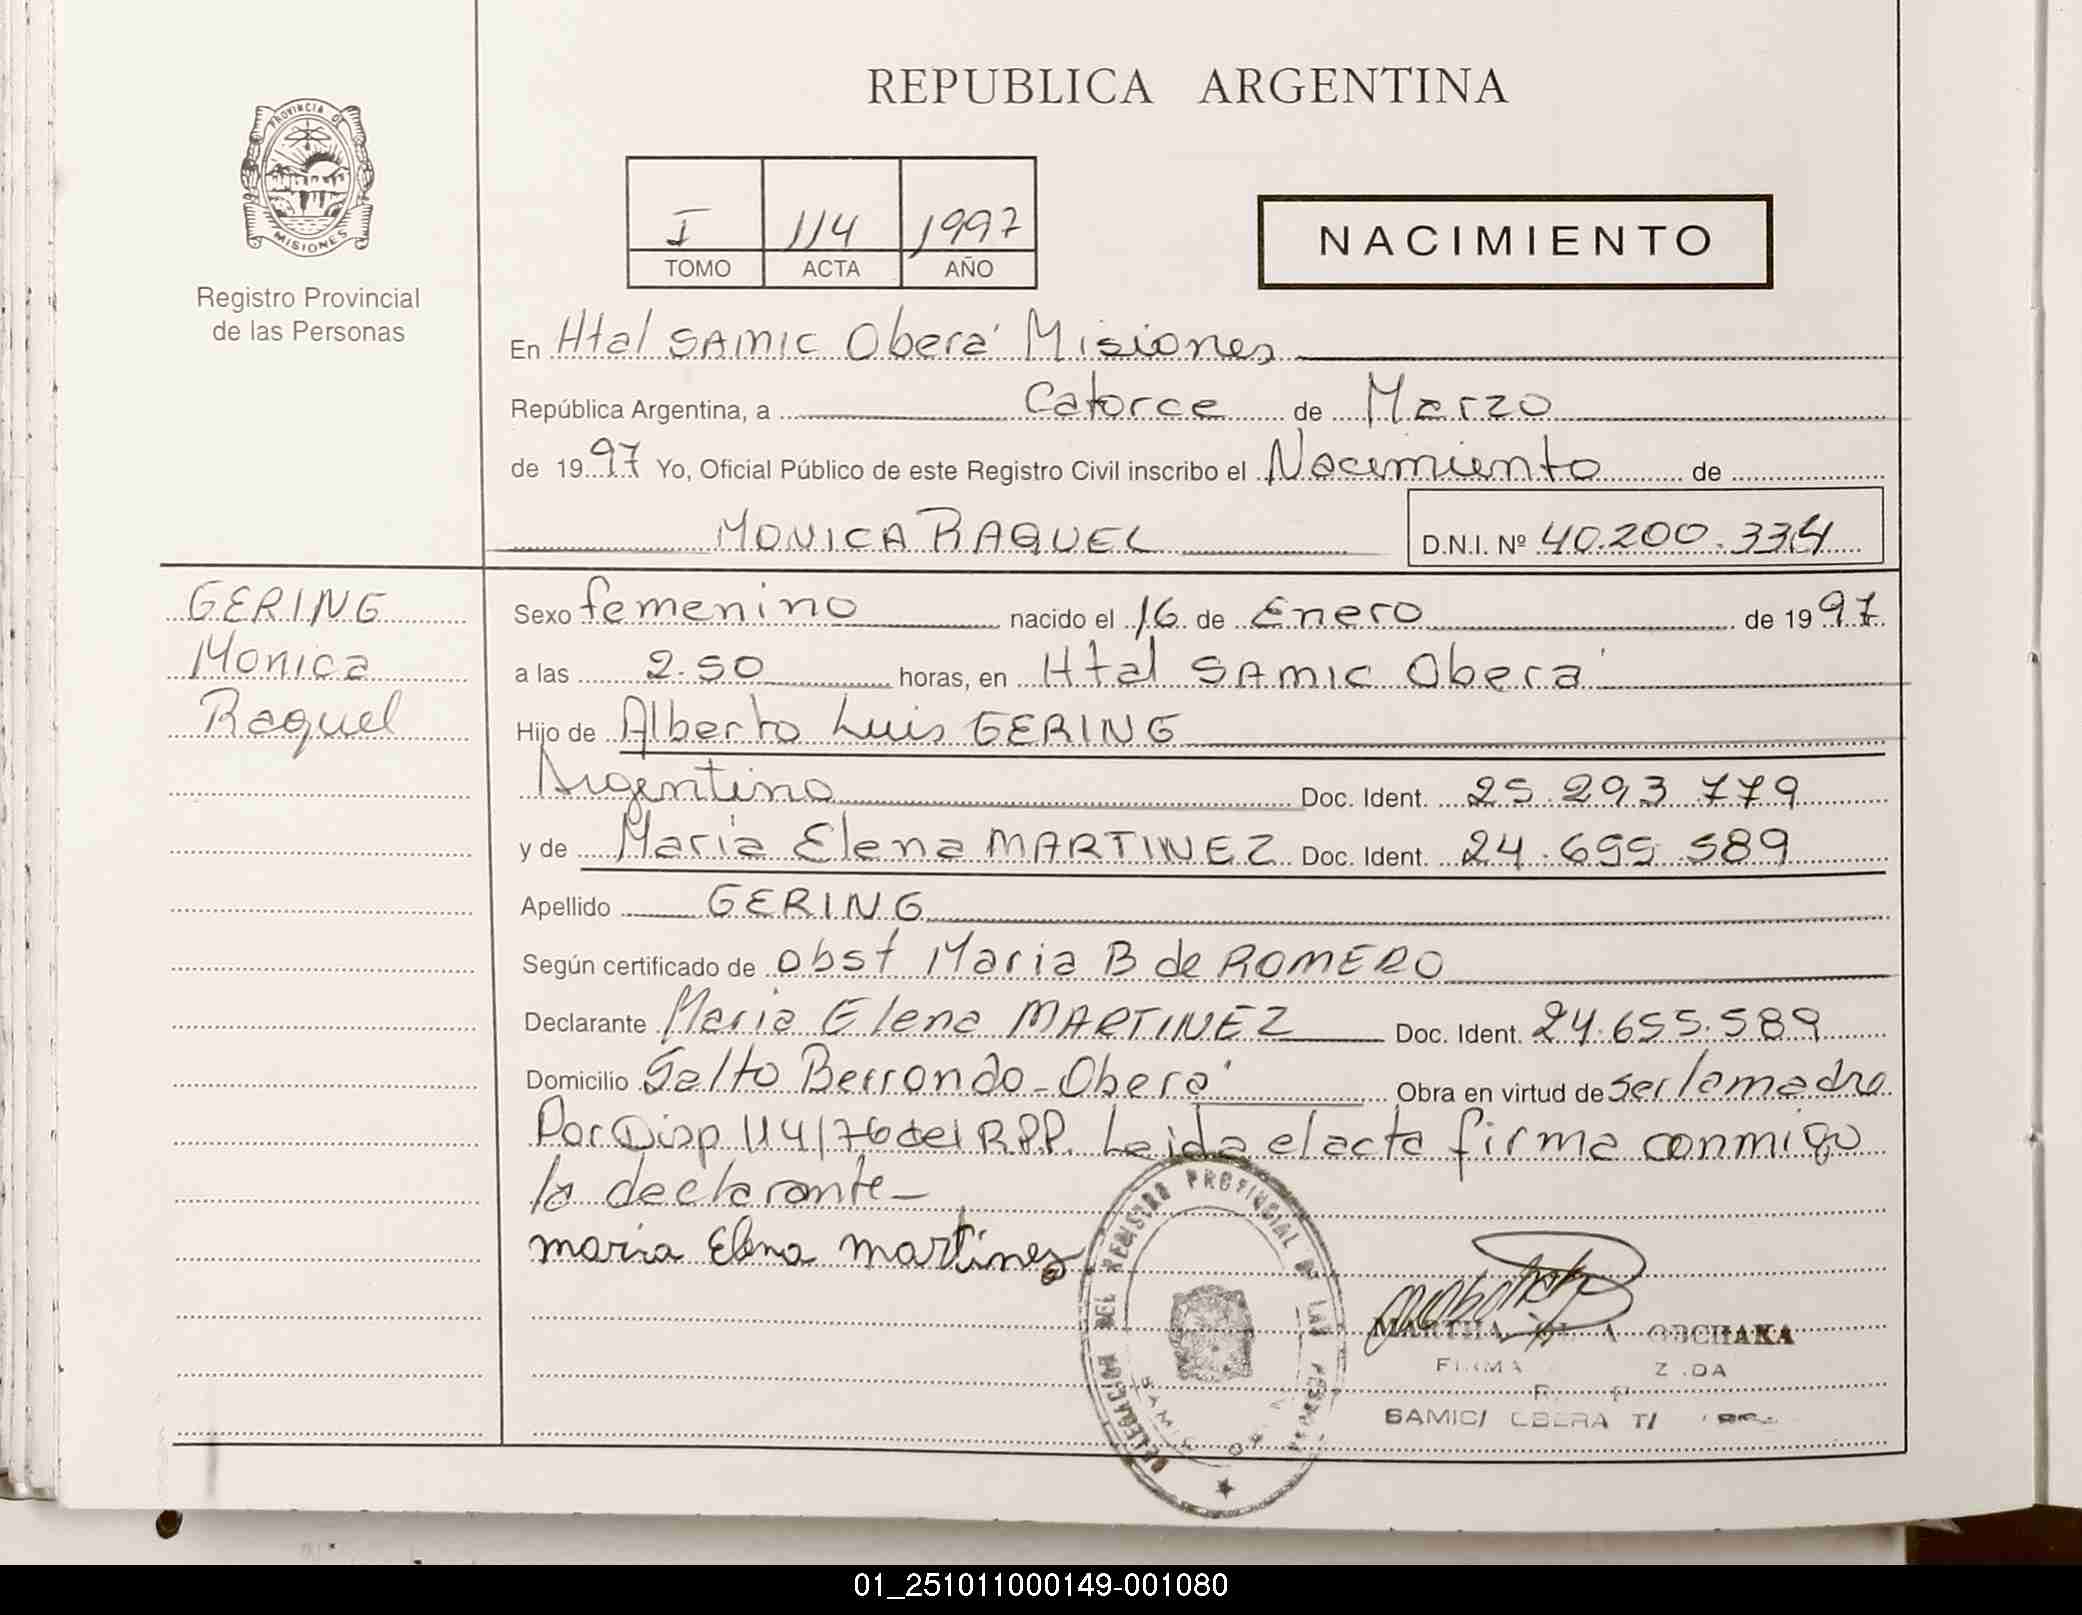 REPUBLICA ARGENTINA
PROVINCIA DE
MISIONES
Registro Provincial
de las Personas
I 114 1997
TOMO ACTA AÑO
NACIMIENTO
En Htal SAMIC Oberá Misiones
República Argentina, a Catorce de Marzo
de 1997 Yo, Oficial Público de este Registro Civil inscribo el Nacimiento de
MONICA RAQUEL D.N.I. Nº 40.200.334
GERING
Monica
Raquel
Sexo femenino nacido el 16 de Enero de 1997
a las 2.50 horas, en Htal SAMIC Oberá
Hijo de Alberto Luis GERING
Argentino Doc. Ident. 25.293.779
y de María Elena MARTINEZ Doc. Ident. 24.655.589
Apellido GERING
Según certificado de obst Maria B de ROMERO
Declarante Maria Elena MARTINEZ Doc. Ident. 24.655.589
Domicilio Salto Berrondo - Oberá Obra en virtud de ser la madre
Por Disp 114/76 del R.P.P. Leida el acta firma conmigo
la declarante -
maria Elena martines
DELEGACION DEL REGISTRO PROVINCIAL DE LAS PERSONAS
MARTHA OBCHAKA
SAMIC/ OBERA
01_251011000149-001080